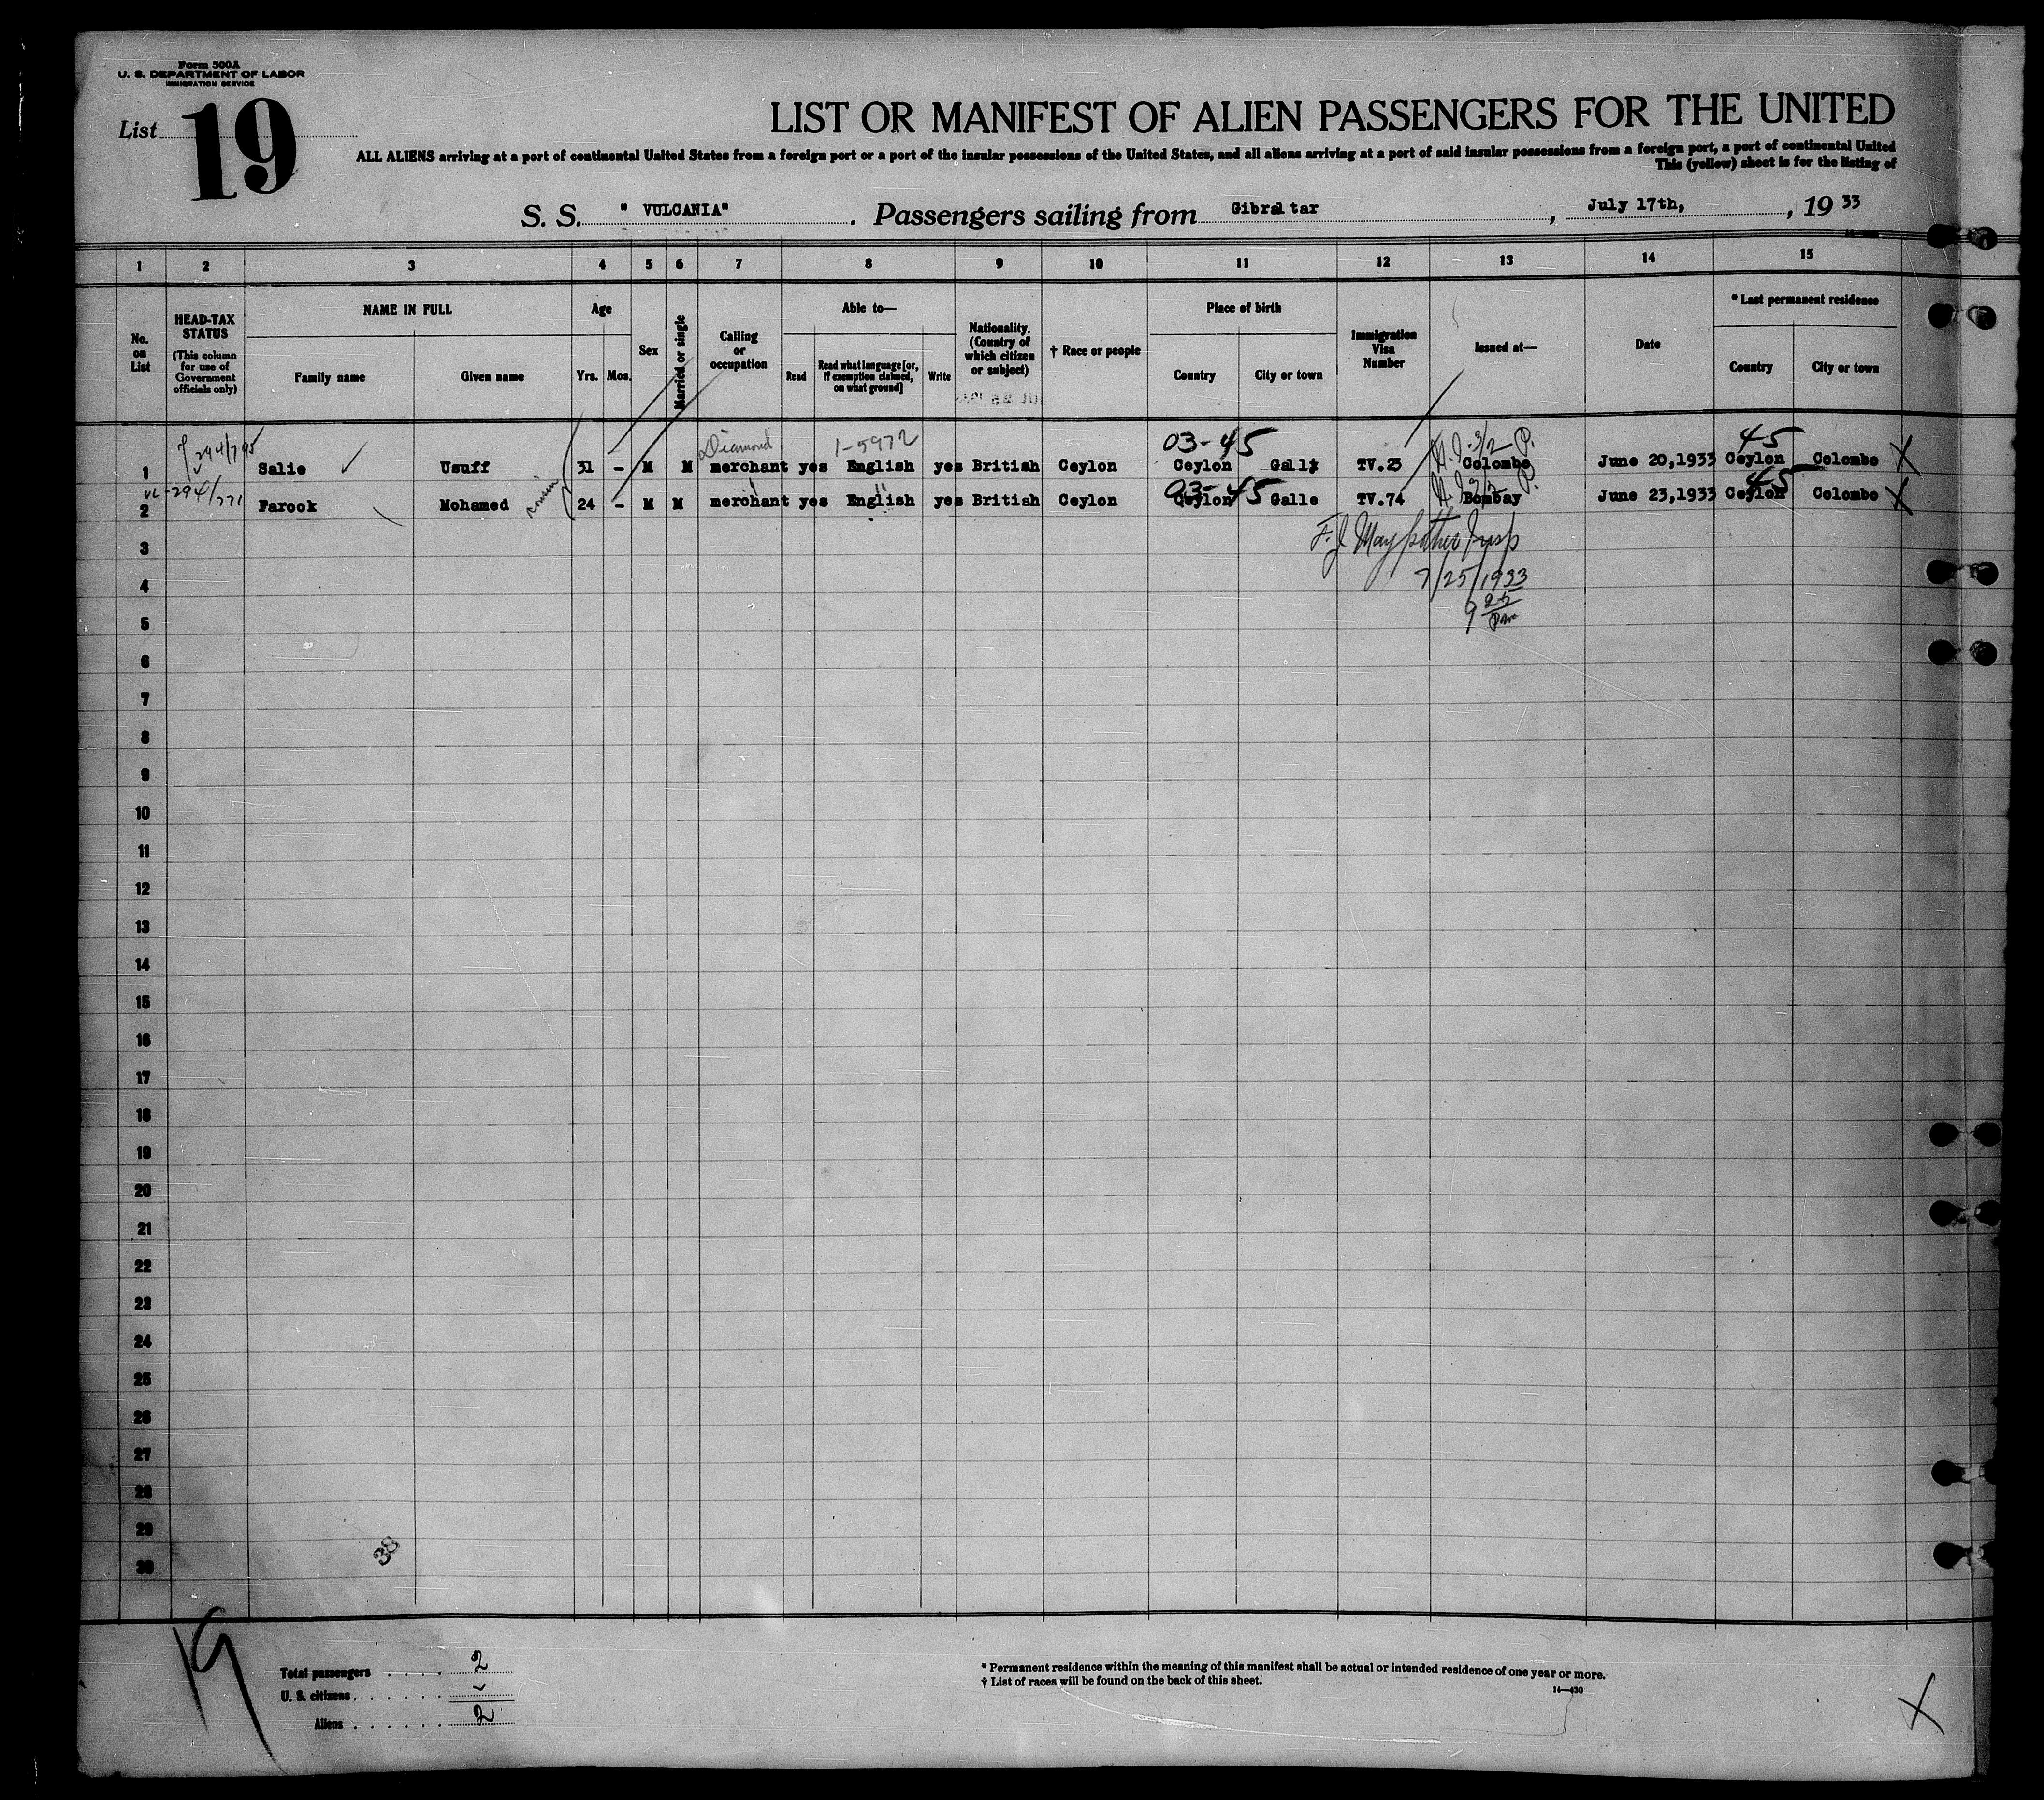 Form 500A
U. S. DEPARTMENT OF LABOR
IMMIGRATION SERVICE
List 19
LIST OR MANIFEST OF ALIEN PASSENGERS FOR THE UNITED
ALL ALIENS arriving at a port of continental United States from a foreign port or a port of the insular possessions of the United States, and all aliens arriving at a port of said insular possessions from a foreign port, a port of continental United
This (yellow) sheet is for the listing of
S. S. "VULCANIA". Passengers sailing from Gibraltar, July 17th, , 19 33
1 2 3 4 5 6 7 8 9 10 11 12 13 14 15
No. on List
HEAD-TAX STATUS
(This column for use of Government officials only)
NAME IN FULL
Family name Given name
Age
Yrs. Mos.
Sex
Married or single
Calling or occupation
Able to—
Read Read what language [or, if exemption claimed, on what ground] Write
Nationality. (Country of which citizen or subject)
† Race or people
Place of birth
Country City or town
Immigration Visa Number
Issued at—
Date
* Last permanent residence
Country City or town
294/795 Diamond 1-5972 03-45 45
1 Salie Usuff 31 - M M merchant yes English yes British Ceylon Ceylon Galle TV.23 Colombo June 20,1933 Ceylon Colombo X
294/771 03-45 45
2 Farook Mohamed 24 - M M merchant yes English yes British Ceylon Ceylon Galle TV.74 Bombay June 23,1933 Ceylon Colombo X
3
F. J. Insp
4
7/25/1933
5
9 25
6
7
8
9
10
11
12
13
14
15
16
17
18
19
20
21
22
23
24
25
26
27
28
29
30
38
19
Total passengers . . . . 2
U. S. citizens . . . . . . .
Aliens . . . . . . 2
* Permanent residence within the meaning of this manifest shall be actual or intended residence of one year or more.
† List of races will be found on the back of this sheet.
14—430
X